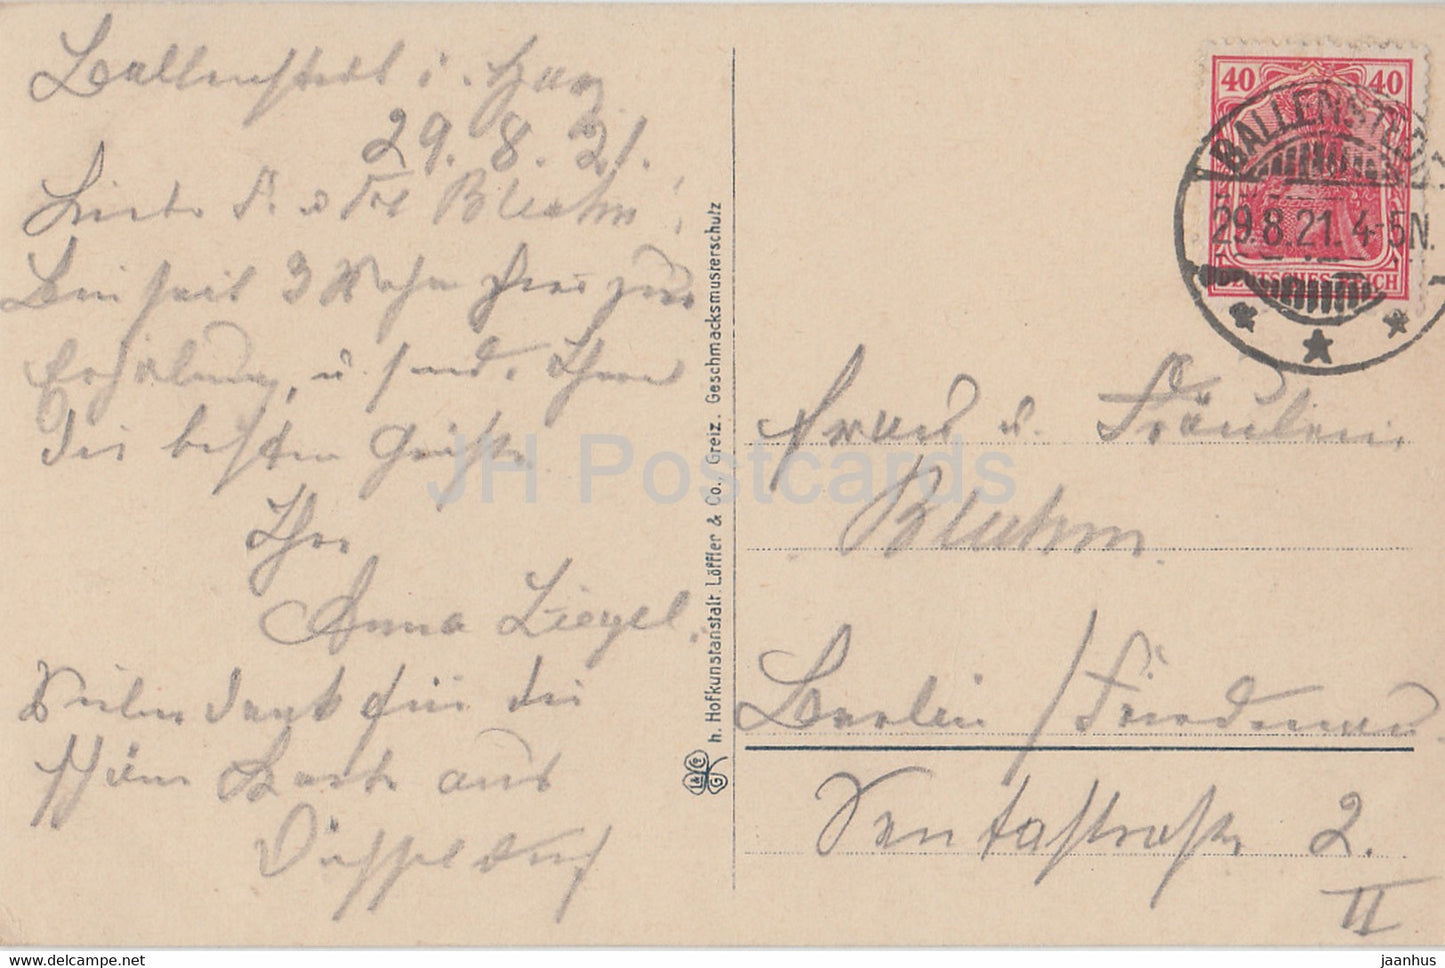 Ballenstedt i. Harz
29. 8. 21.
Liebe Fr. u Frl Bluhm!
Bin seit 3 Wochen hier zur
Erholung, u. send. Ihnen
die besten Grüße
Ihre
Anna Ziegel.
Vielen Dank für die
schöne Karte aus
Düsseldorf
h. Hofkunstanstalt Löffler & Co., Greiz. Geschmacksmusterschutz
L&C
G
JH Postcards
40 40
DEUTSCHES REICH
BALLENSTEDT
29.8.21. 4-5N.
Frau u. Fräulein
Bluhm
Berlin / Friedenau
Sentastraße 2.
II
jaanhus
jaanhus